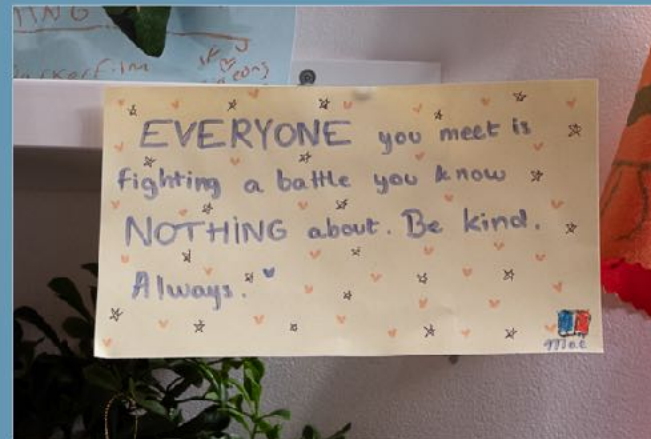 EVERYONE you meet is
fighting a battle you know
NOTHING about. Be kind.
Always.